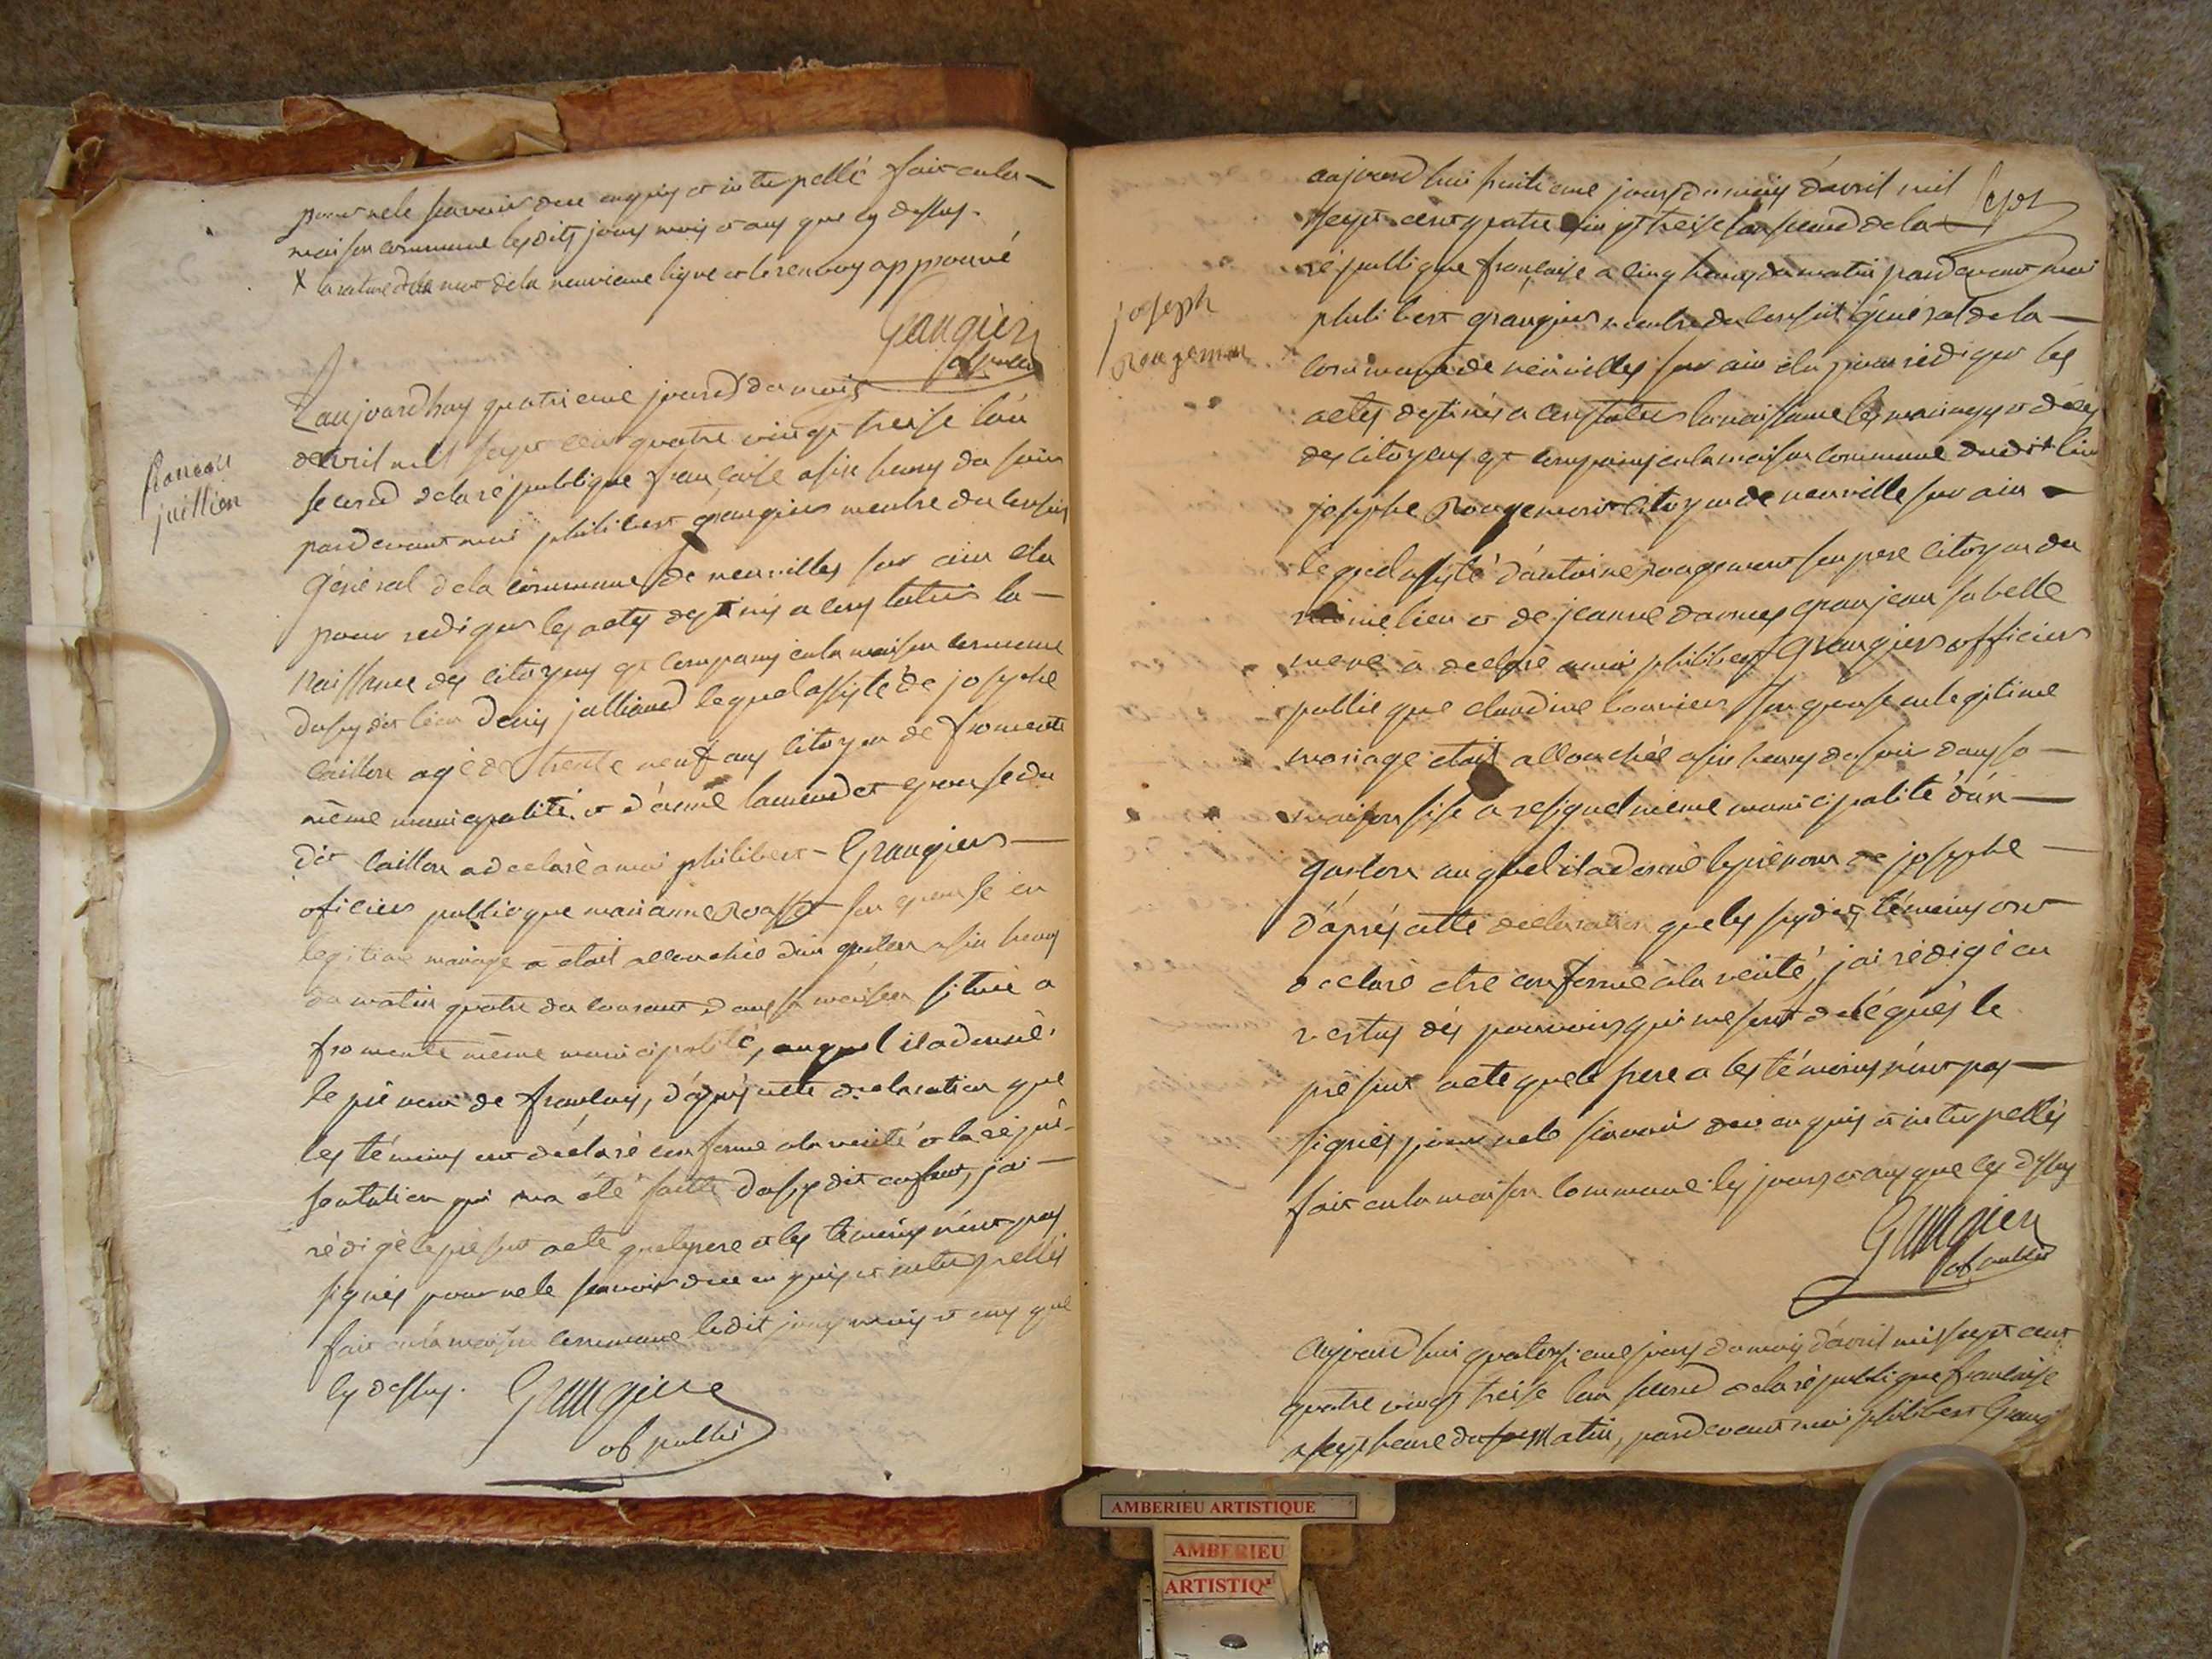 pour ne le scavoir dece enquis et interpellé fait en la
maison commune lesdits jours mois et ans que cy dessus.
X la rature du mot de la neuvieme ligne et le renvoy approuvé
Grangier
of public
françois
juillien
L'aujourdhuy quatrieme jours du mois
davril mil sept cent quatre vingt treise l'an
second de la république française a six heures du soir
pardevant moi philibert grangier membre du conseil
général de la commune de neuvilles sur ain elu
pour rediger les actes destinés a constater la
naissance des citoyens est comparus en la maison commune
dususdit lieu denis julliand lequel assisté de josephe
caillon agé de trente neuf ans citoyen de fromente
même municipalité et d'anne epouse du
dit caillon a declaré a moi philibert Grangiers
oficier public que marianne son epouse en
legitime mariage etait accouchée d'un garcon a six heures
du matin quatre du courant dans sa maison situé a
fromente même municipalité, auquel il a donné
le pré nom de françois, d'aprés cette declaration que
les témoins ont declaré conforme a la verité et la répré
sentation qui ma été faitte du susdit enfant, jai
rédigé le présent acte que le pere et les témoins n'ont pas
signés pour ne le scavoir dece enquis et interpellés
fait en la maison commune ledit jours mois et ans que
cy dessus.
Grangier
of public
joseph
Rougemon
aujourd'hui huitieme jours du mois d'avril mil
sept cent quatre vingt treise l'an second de la
république française a cinq heures du matin pardevant moi
philibert grangier membre du conseil général de la
commune de neuvilles sur ain elu pour rédiger les
actes destinés a constater la naissance les mariages et décés
des citoyens est comparus en la maison commune dudit lieu
josephe Rougemont citoyen de neuville sur ain
lequel assisté d'antoine rougemont son pere citoyen du
même lieu et de jeanne granjean sa belle
mere a declaré a moi philibert Grangiers officier
public que claudine son epouse en legitime
mariage etait accouchée a six heures du soir dans sa
maison sise a resignel même municipalité d'un
garcon auquel il a donné le prénom de josephe
d'aprés cette declaration que les susdits témoins ont
declaré etre conforme a la verité, jai rédigé en
vertus des pouvoirs qui me sont délégués le
présent acte que le pere et les témoins n'ont pas
signés pour ne le scavoir dece enquis et interpellés
fait en la maison commune les jours et ans que cy dessus
Grangier
of public
aujourd'hui quatorsieme jours du mois d'avril mil sept cent
quatre vingt treise l'an second de la république française
a sept heure du matin, pardevant moi philibert Grang
AMBERIEU ARTISTIQUE
AMBERIEU
ARTISTIQ